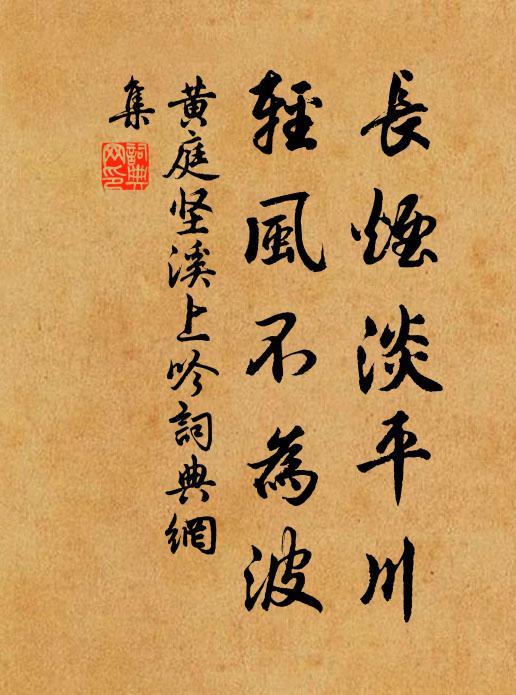 長煙淡平川
輕風不為波
黃庭坚溪上吟詞典網
集
詞典
网印